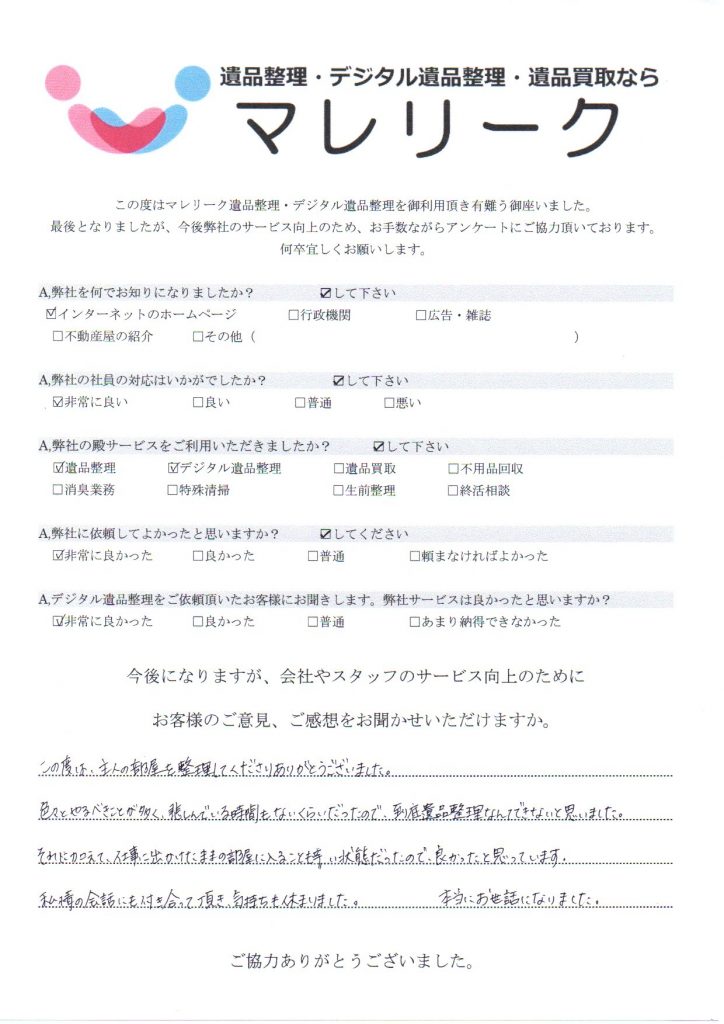 遺品整理・デジタル遺品整理・遺品買取なら
マレリーク
この度はマレリーク遺品整理・デジタル遺品整理を御利用頂き有難う御座いました。
最後となりましたが、今後弊社のサービス向上のため、お手数ながらアンケートにご協力頂いております。
何卒宜しくお願いします。
A,弊社を何でお知りになりましたか？ ☑して下さい
☑インターネットのホームページ □行政機関 □広告・雑誌
□不動産屋の紹介 □その他（ ）
A,弊社の社員の対応はいかがでしたか？ ☑して下さい
☑非常に良い □良い □普通 □悪い
A,弊社の殿サービスをご利用いただきましたか？ ☑して下さい
☑遺品整理 ☑デジタル遺品整理 □遺品買取 □不用品回収
□消臭業務 □特殊清掃 □生前整理 □終活相談
A,弊社に依頼してよかったと思いますか？ ☑してください
☑非常に良かった □良かった □普通 □頼まなければよかった
A,デジタル遺品整理をご依頼頂いたお客様にお聞きします。弊社サービスは良かったと思いますか？
☑非常に良かった □良かった □普通 □あまり納得できなかった
今後になりますが、会社やスタッフのサービス向上のために
お客様のご意見、ご感想をお聞かせいただけますか。
この度は、主人の部屋を整理してくださりありがとうございました。
色々とやるべきことが多く、悲しんでいる時間もないくらいだったので、到底遺品整理なんてできないと思いました。
それに加えて、仕事に出かけたままの部屋に入ることも辛い状態だったので、良かったと思っています。
私共の会話にも付き合って頂き、気持ちも休まりました。 本当にお世話になりました。
ご協力ありがとうございました。